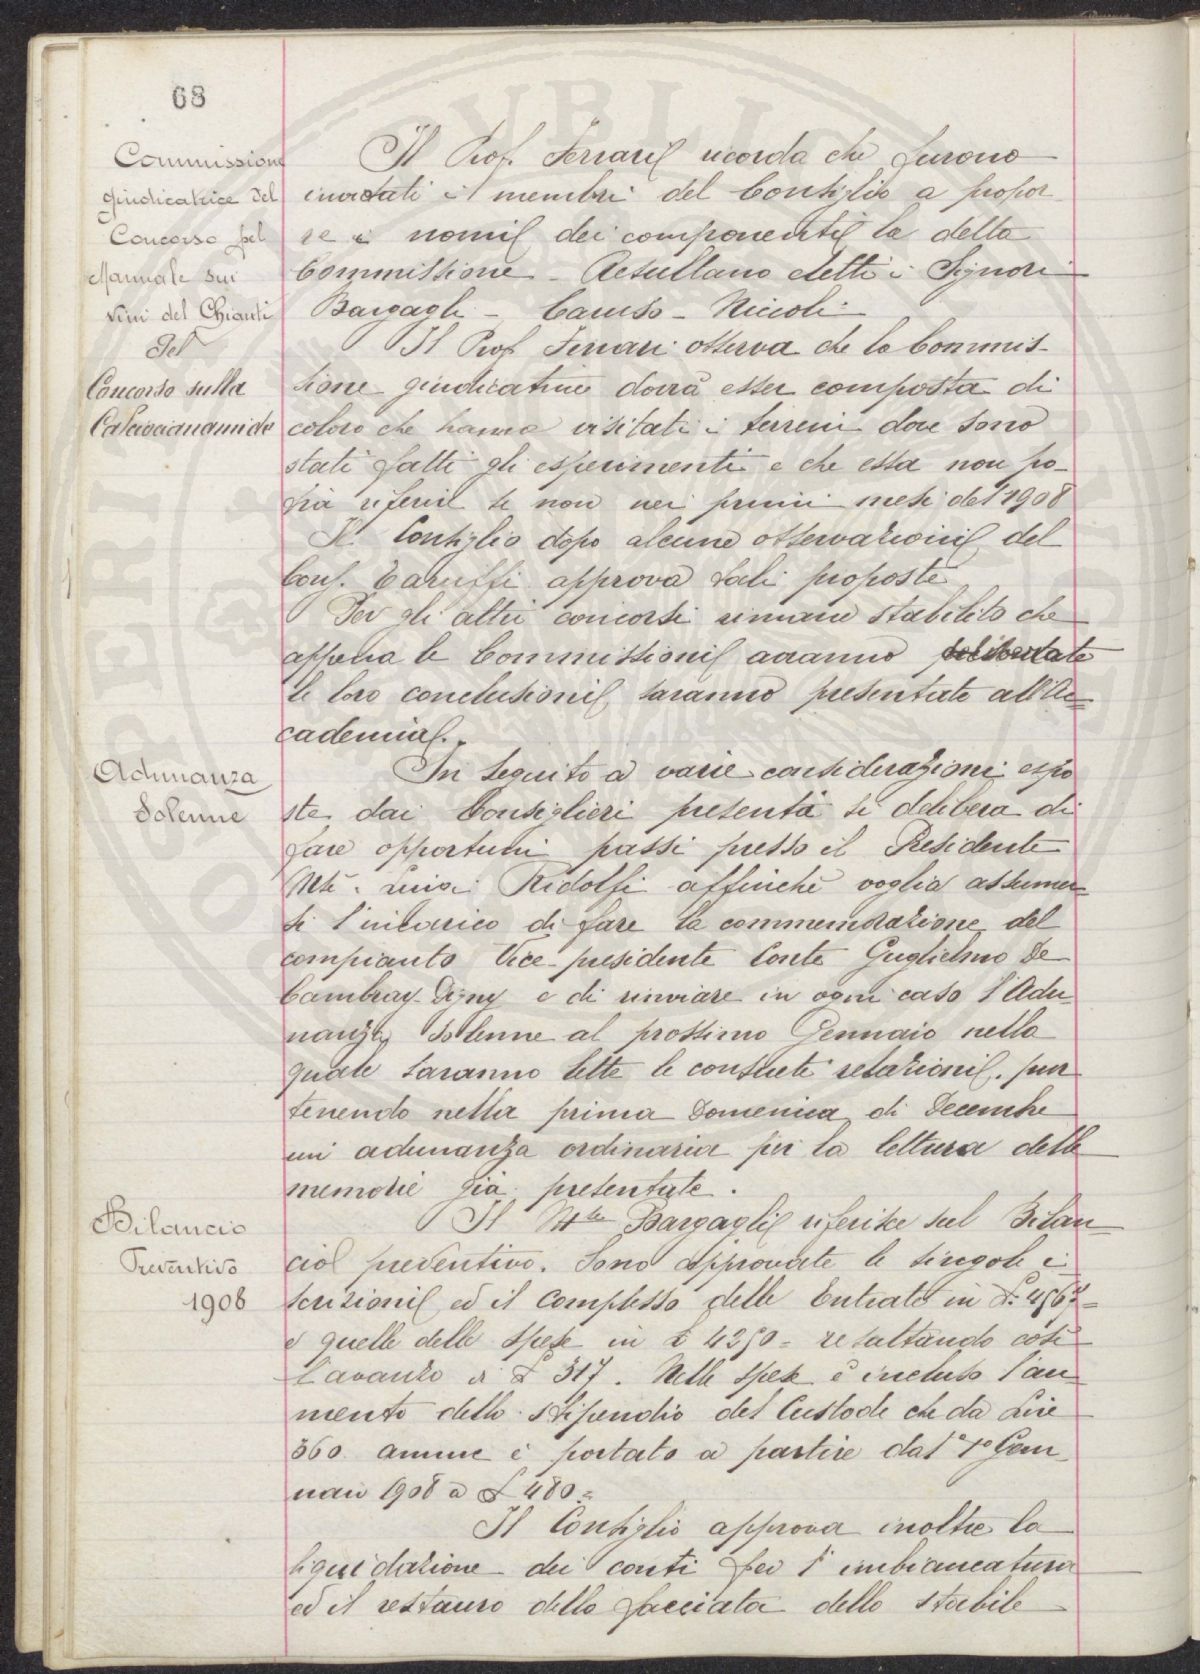 68
Commissione
giudicatrice del
Concorso pel
Manuale sui
Vini del Chianti
Del
Concorso sulla
Calciocianamide
Il Prof. Ferrari ricorda che furono
invitati i membri del Consiglio a propor
re i nomi dei componenti la detta
Commissione - Resultano eletti i Signori
Bargagli - Caruso - Niccoli -
Il Prof Ferrari osserva che la Commis-
sione giudicatrice dovrà esser composta di
coloro che hanno visitati i terreni dove sono
stati fatti gli esperimenti e che essa non po-
trà riferire se non nei primi mesi del 1908
Il Consiglio dopo alcune osservazioni del
Cons. Taruffi approva tali proposte
Per gli altri concorsi rimane stabilito che
appena le Commissioni avranno presentate
le loro conclusioni saranno presentate all'Ac=
cademia.
Adunanza
Solenne
In seguito a varie considerazioni espo
ste dai Consiglieri presenti si delibera di
fare opportuni passi presso il Presidente
Mse. Luigi Ridolfi affinchè voglia assumer=
si l'incarico di fare la commemorazione del
compianto Vice-presidente Conte Guglielmo De
Cambray-Digny e di rinviare in ogni caso l'Adu-
nanza Solenne al prossimo Gennaio nella
quale saranno lette le consuete relazioni. pur
tenendo nella prima Domenica di Decembre
un' adunanza ordinaria per la lettura delle
memorie già presentate.
Bilancio
Preventivo
1908
Il Mse Bargagli riferisce sul Bilan-
cio preventivo. Sono approvate le singole i-
scrizioni ed il complesso delle Entrate in L. 4567=
e quelle delle spese in £ 4250= resultando così
l'avanzo di £ 317. Nelle spese è incluso l'au-
mento dello stipendio del Custode che da Lire
360 annue è portato a partire dal 1° Gen-
naio 1908 a £ 480=
Il Consiglio approva inoltre la
liquidazione dei conti per l'imbiancatura
ed il restauro della facciata dello stabile